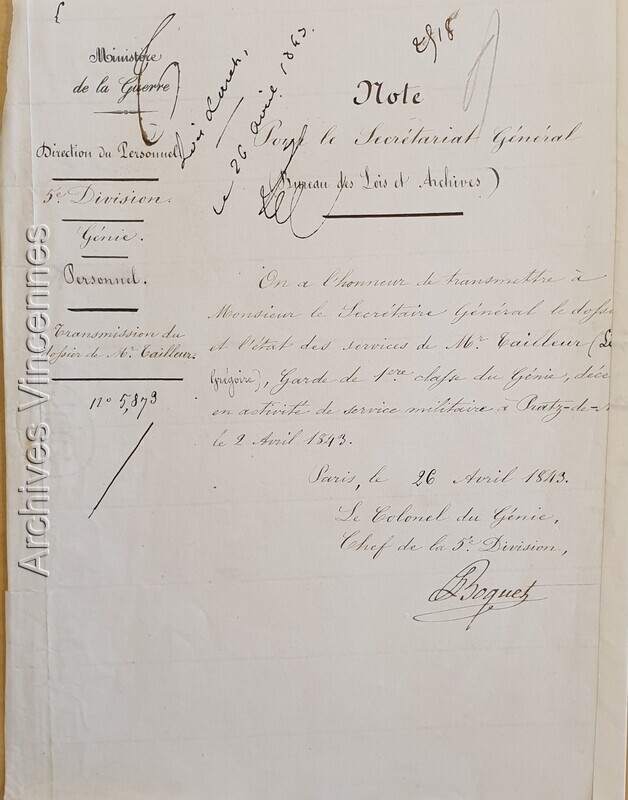 2918
le 26 avril 1843.
Ministère
de la Guerre
Direction du Personnel
5e Division.
Génie.
Personnel.
Transmission du
dossier de Mr Tailleur.
no 5,873
Note
Pour le Secrétariat Général
(Bureau des Lois et Archives)
On a l'honneur de transmettre à
Monsieur le Secrétaire Général le doss
et l'état des services de Mr Tailleur (
Grégoire), Garde de 1ère classe du Génie, décé
en activité de service militaire à Pratz-de-
le 2 Avril 1843.
Paris, le 26 Avril 1843.
Le Colonel du Génie,
Chef de la 5e Division,
Boquet
Archives Vincennes